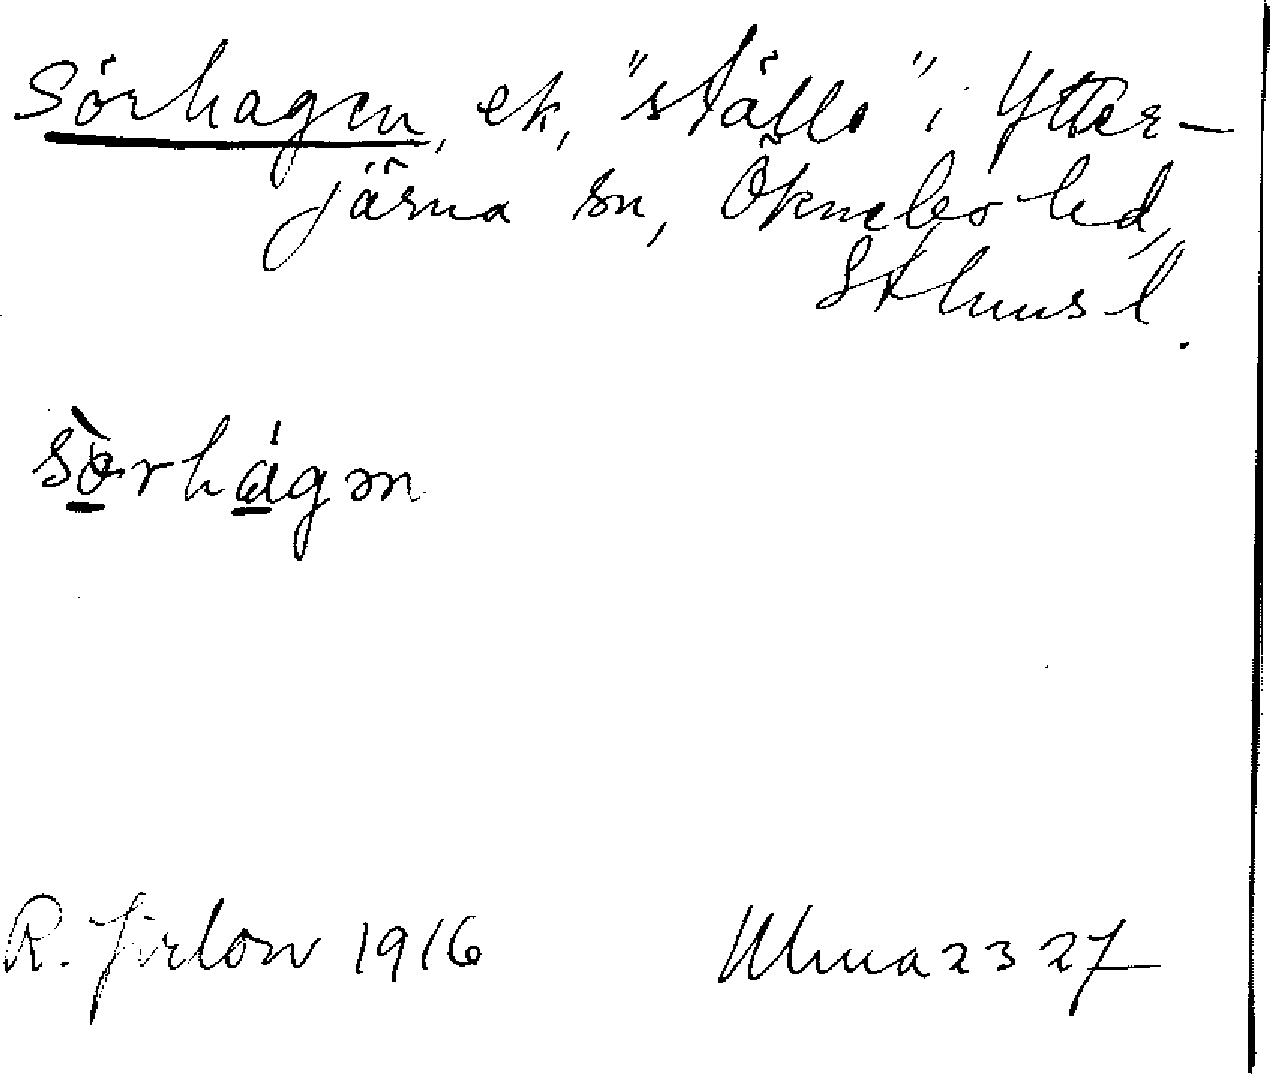 Sörhagen, ek, "ställe" i Ytter-
järna sn, Öknebo hd,
Sthms l.
sörhagən
R. Jirlow 1916 Ulma 2327